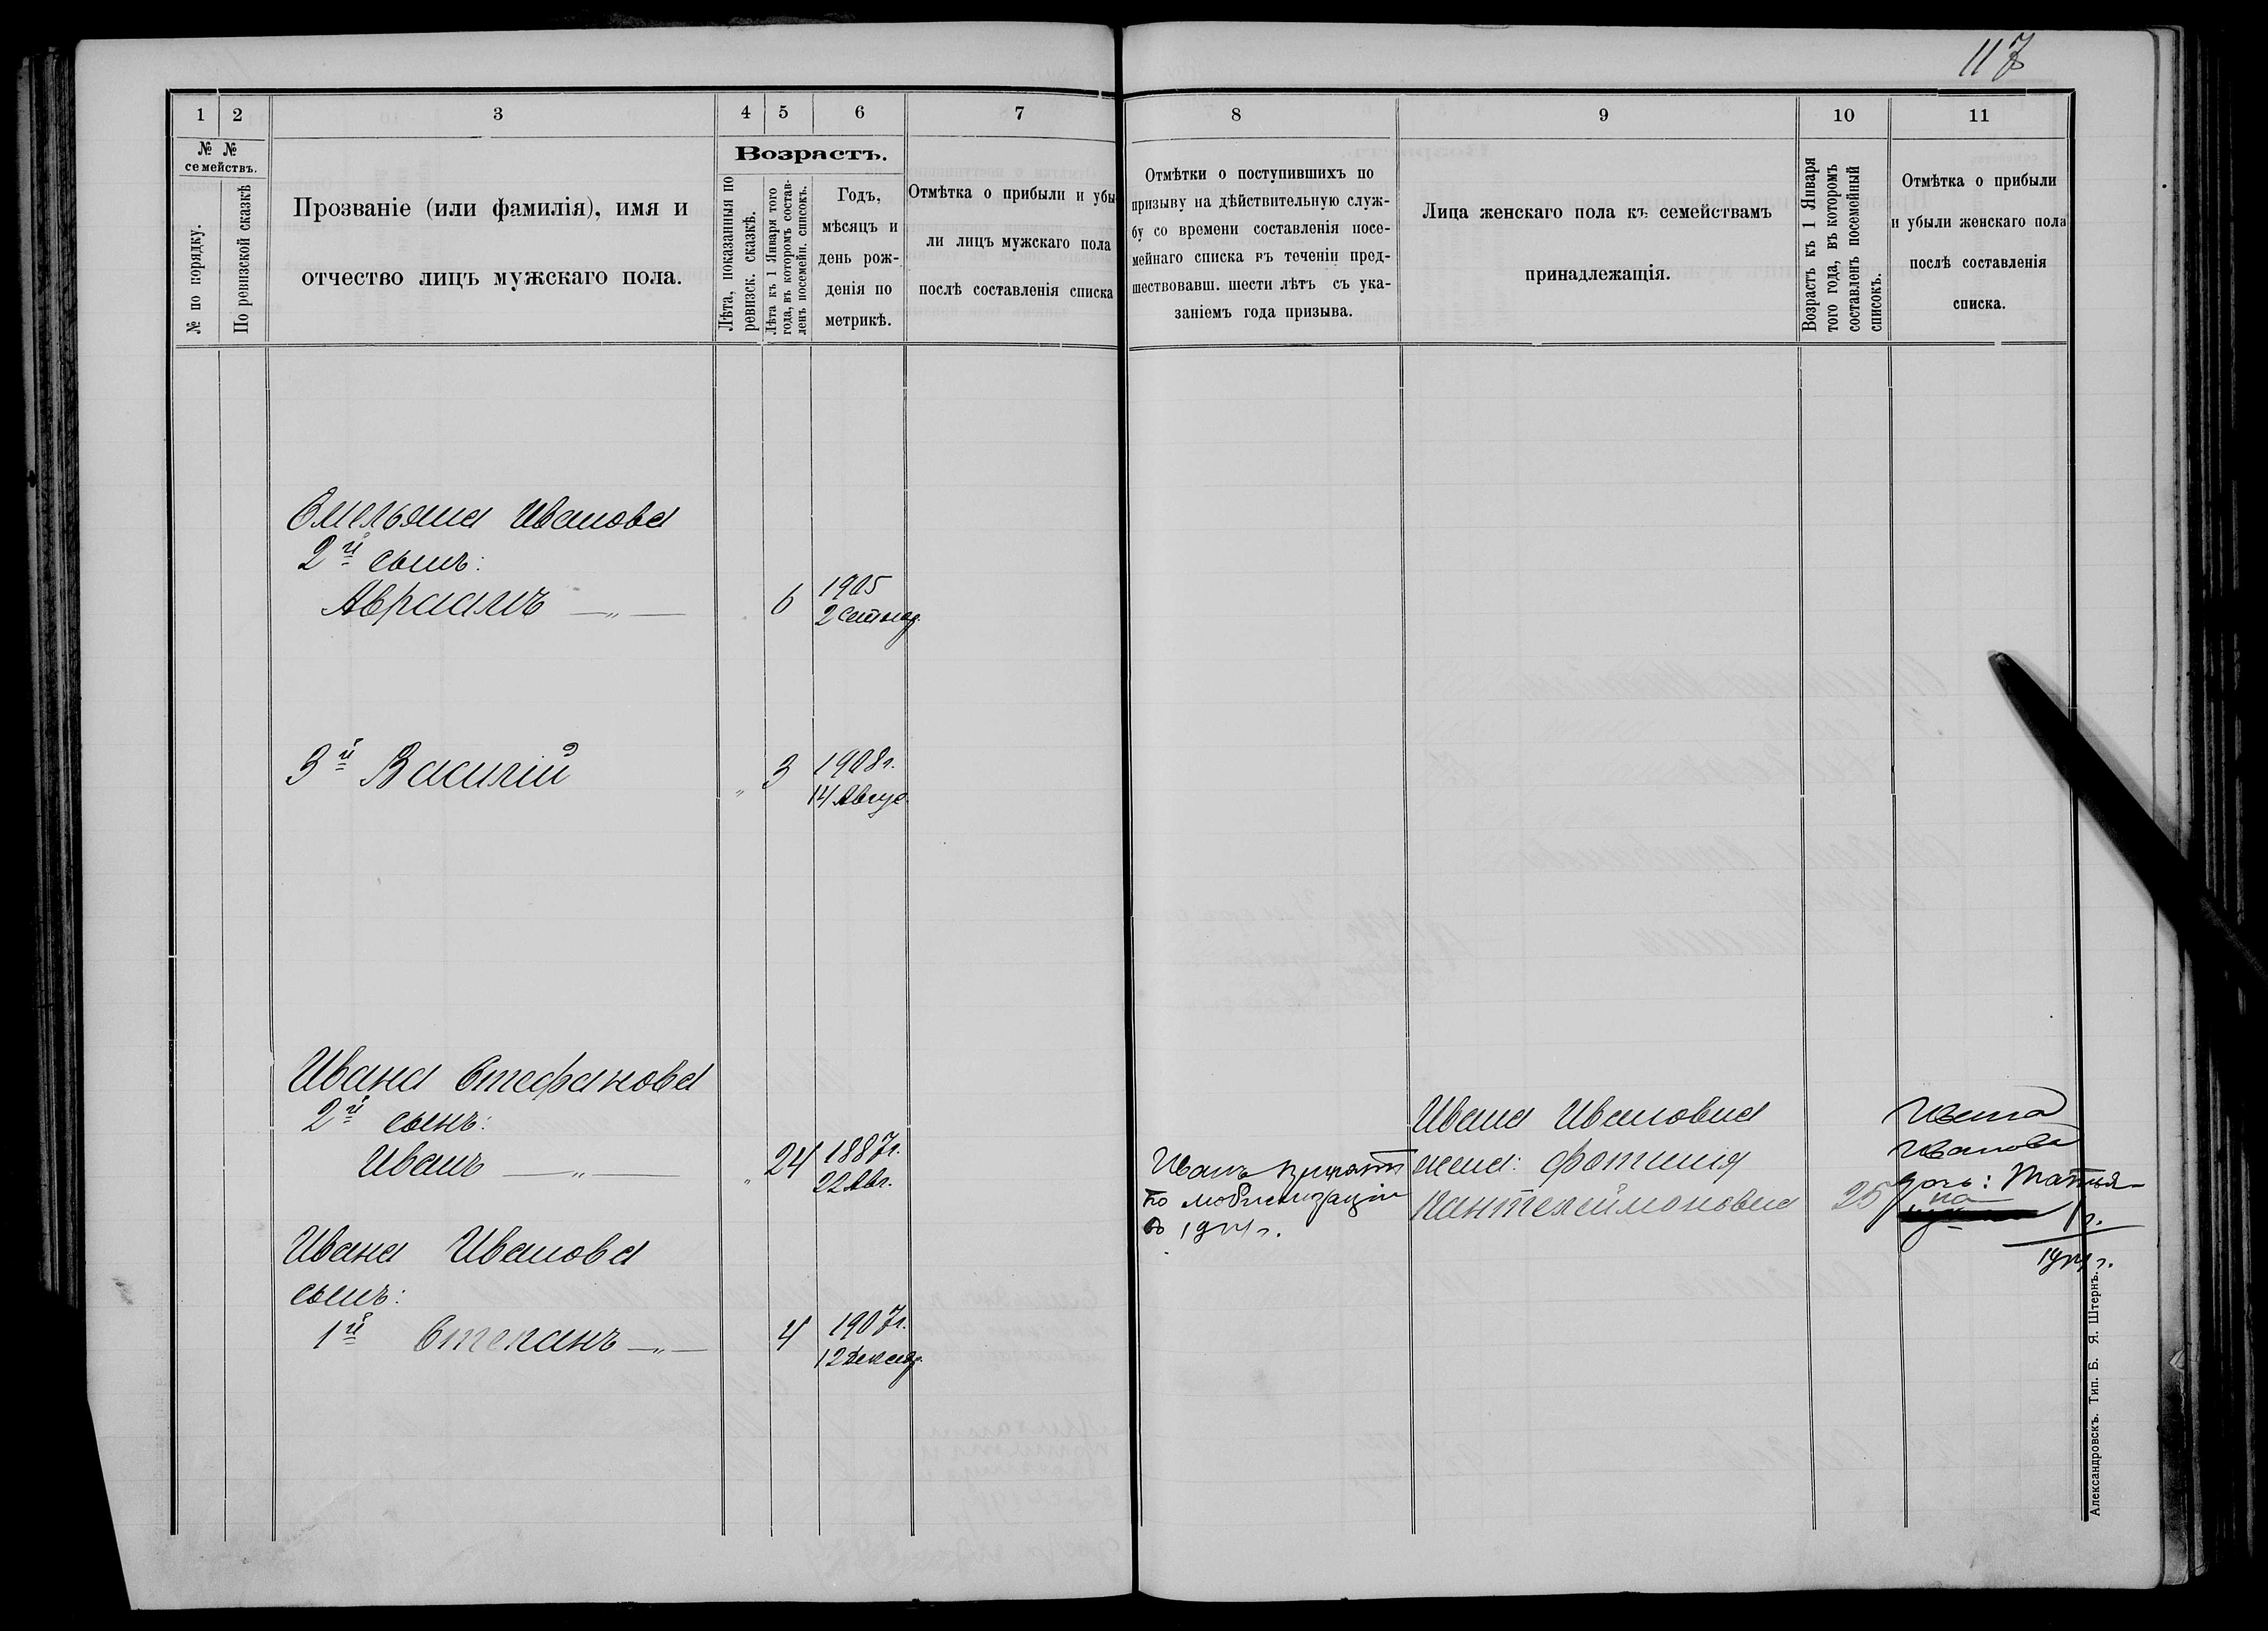 117
1 2 3 4 5 6 7 8 9 10 11
№ №
семействъ.
№ по порядку.
По ревизской сказкѣ
Прозваніе (или фамилія), имя и
отчество лицъ мужскаго пола.
Возрастъ.
Лѣта, показанныя по
ревизск. сказкѣ.
Лѣта къ 1 Января того
года, въ которомъ состав-
ленъ посемейн. списокъ.
Годъ,
мѣсяцъ и
день рож-
денія по
метрикѣ.
Отмѣтка о прибыли и убы
ли лицъ мужскаго пола
послѣ составленія списка
Отмѣтки о поступившихъ по
призыву на дѣйствительную служ-
бу со времени составленія посе-
мейнаго списка въ теченіи пред-
шествовавш. шести лѣтъ съ ука-
заніемъ года призыва.
Лица женскаго пола къ семействамъ
принадлежащія.
Возрастъ къ 1 Января
того года, въ которомъ
составленъ посемейный
списокъ.
Отмѣтка о прибыли
и убыли женскаго пола
послѣ составленія
списка.
Омельяна Иванова
2й сынъ:
Авраамъ — „ — 6 1905
2 Сентяб.
3й Василій „ 3 1908 г.
14 Авгус.
Ивана Стефанова
2й сынъ:
Иванъ — „ — „ 24 1887 г.
22 Авг.
Иванъ принятъ
по мобилизаціи
въ 1914 г.
Ивана Иванова
жена: Фотинія
Пантелеймоновна 25
Ивана
Иванова
дочь: Татья-
на
1 г.
1914 г.
Ивана Иванова
сынъ:
1й Степанъ — „ — 4 1907 г.
12 Декаб.
Александровскъ. Тип. Б. Я. Штернъ.